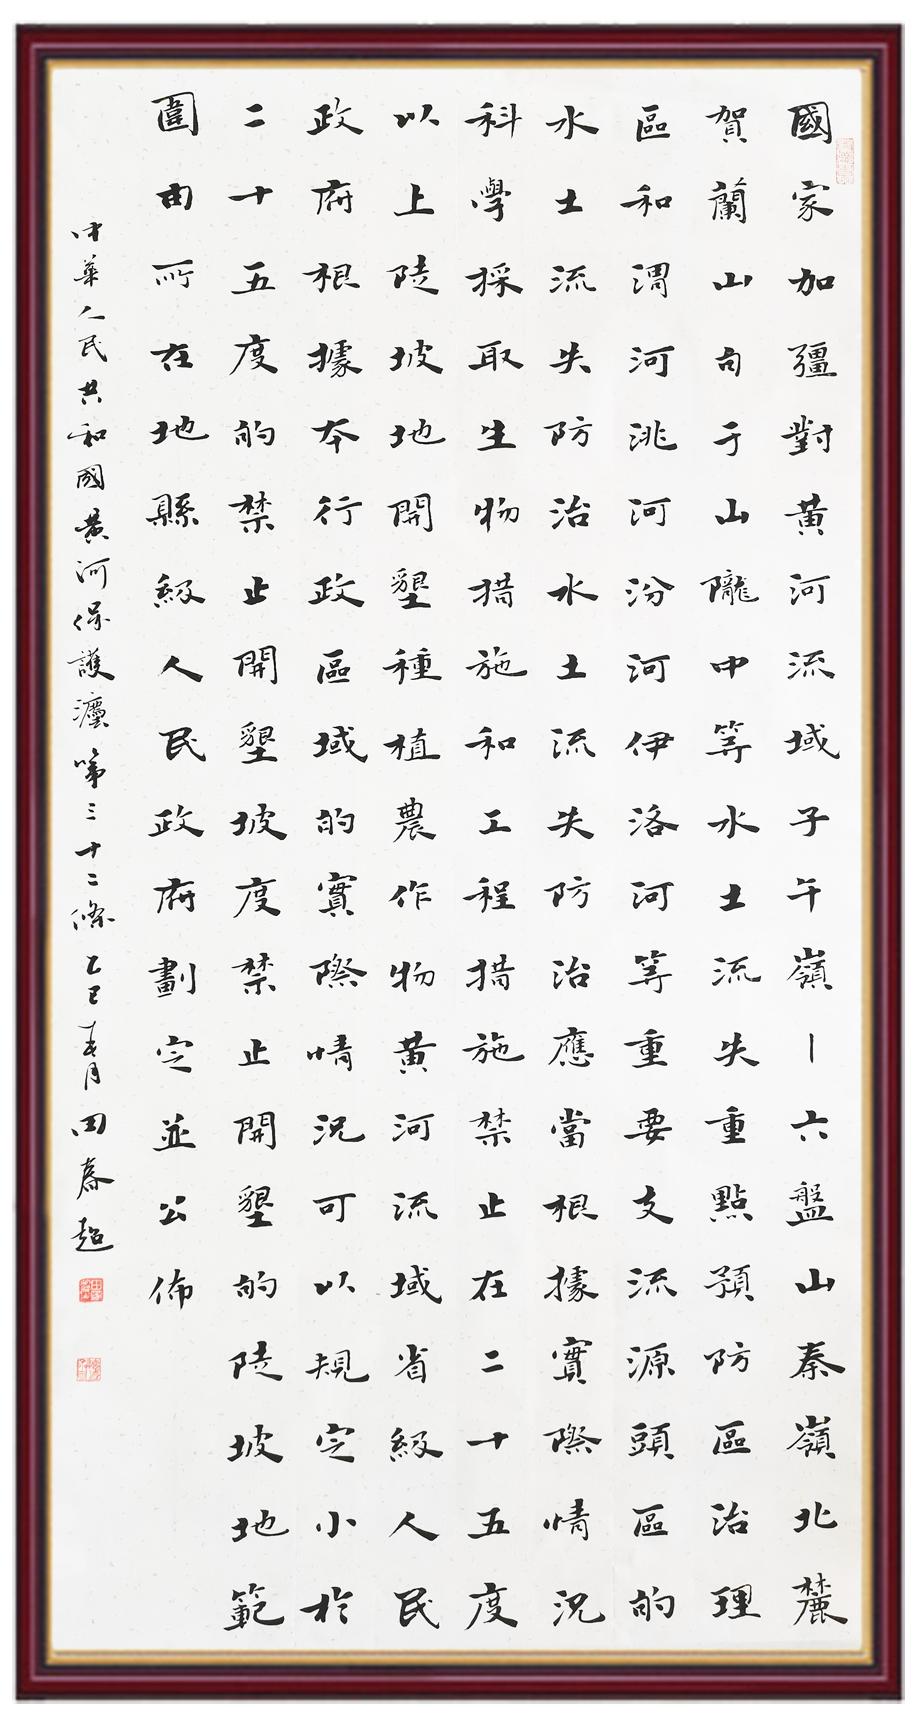 國家加彊對黃河流域子午嶺—六盤山秦嶺北麓
賀蘭山白于山隴中等水土流失重點預防區治理
區和渭河洮河汾河伊洛河等重要支流源頭區的
水土流失防治水土流失防治應當根據實際情況
科學採取生物措施和工程措施禁止在二十五度
以上陡坡地開墾種植農作物黃河流域省級人民
政府根據本行政區域的實際情況可以規定小於
二十五度的禁止開墾坡度禁止開墾的陡坡地範
圍由所在地縣級人民政府劃定並公佈
中華人民共和國黃河保護灋第三十二條乙巳春月田春超